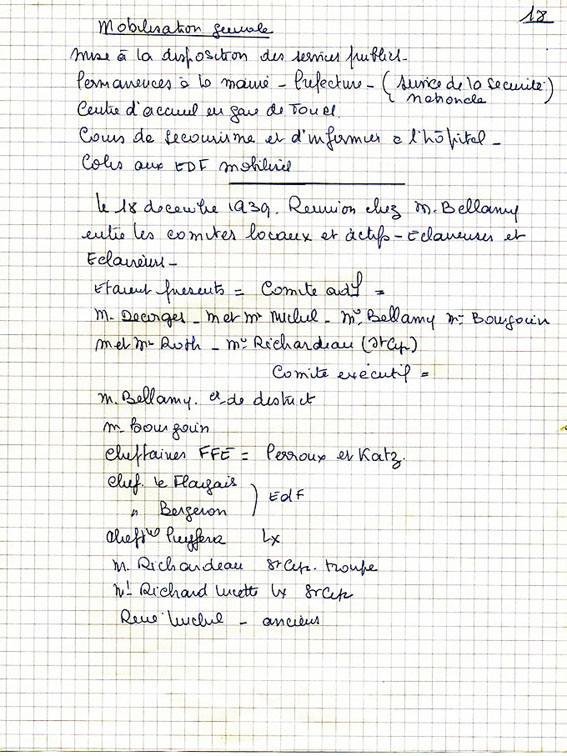 18
Mobilisation generale
mise à la disposition des services publics -
Permanences à la mairie - Prefecture - (service de la securité nationale)
Centre d'accueil en gare de
Cours de secourisme et d'infirmier à l'hôpital -
Colis aux EDF mobilisés
le 18 decembre 1939. Reunion chez M. Bellamy
entre les comites locaux et actifs - Eclaireuses et
Eclaireurs -
Etaient presents = Comite =
M. Decorges - M et Me Michel - Me Bellamy Me Bourgoin
M et Me Roth - Me Richardeau (St Cyp)
Comite exécutif =
M. Bellamy. de district
M. Bourgoin
Cheftaines FFE = Perroux et Katz.
Chef. le
" Bergeron } EdF
Lx
M. Richardeau St Cyp. troupe
Richard Lx St Cyp
René Michel - anciens